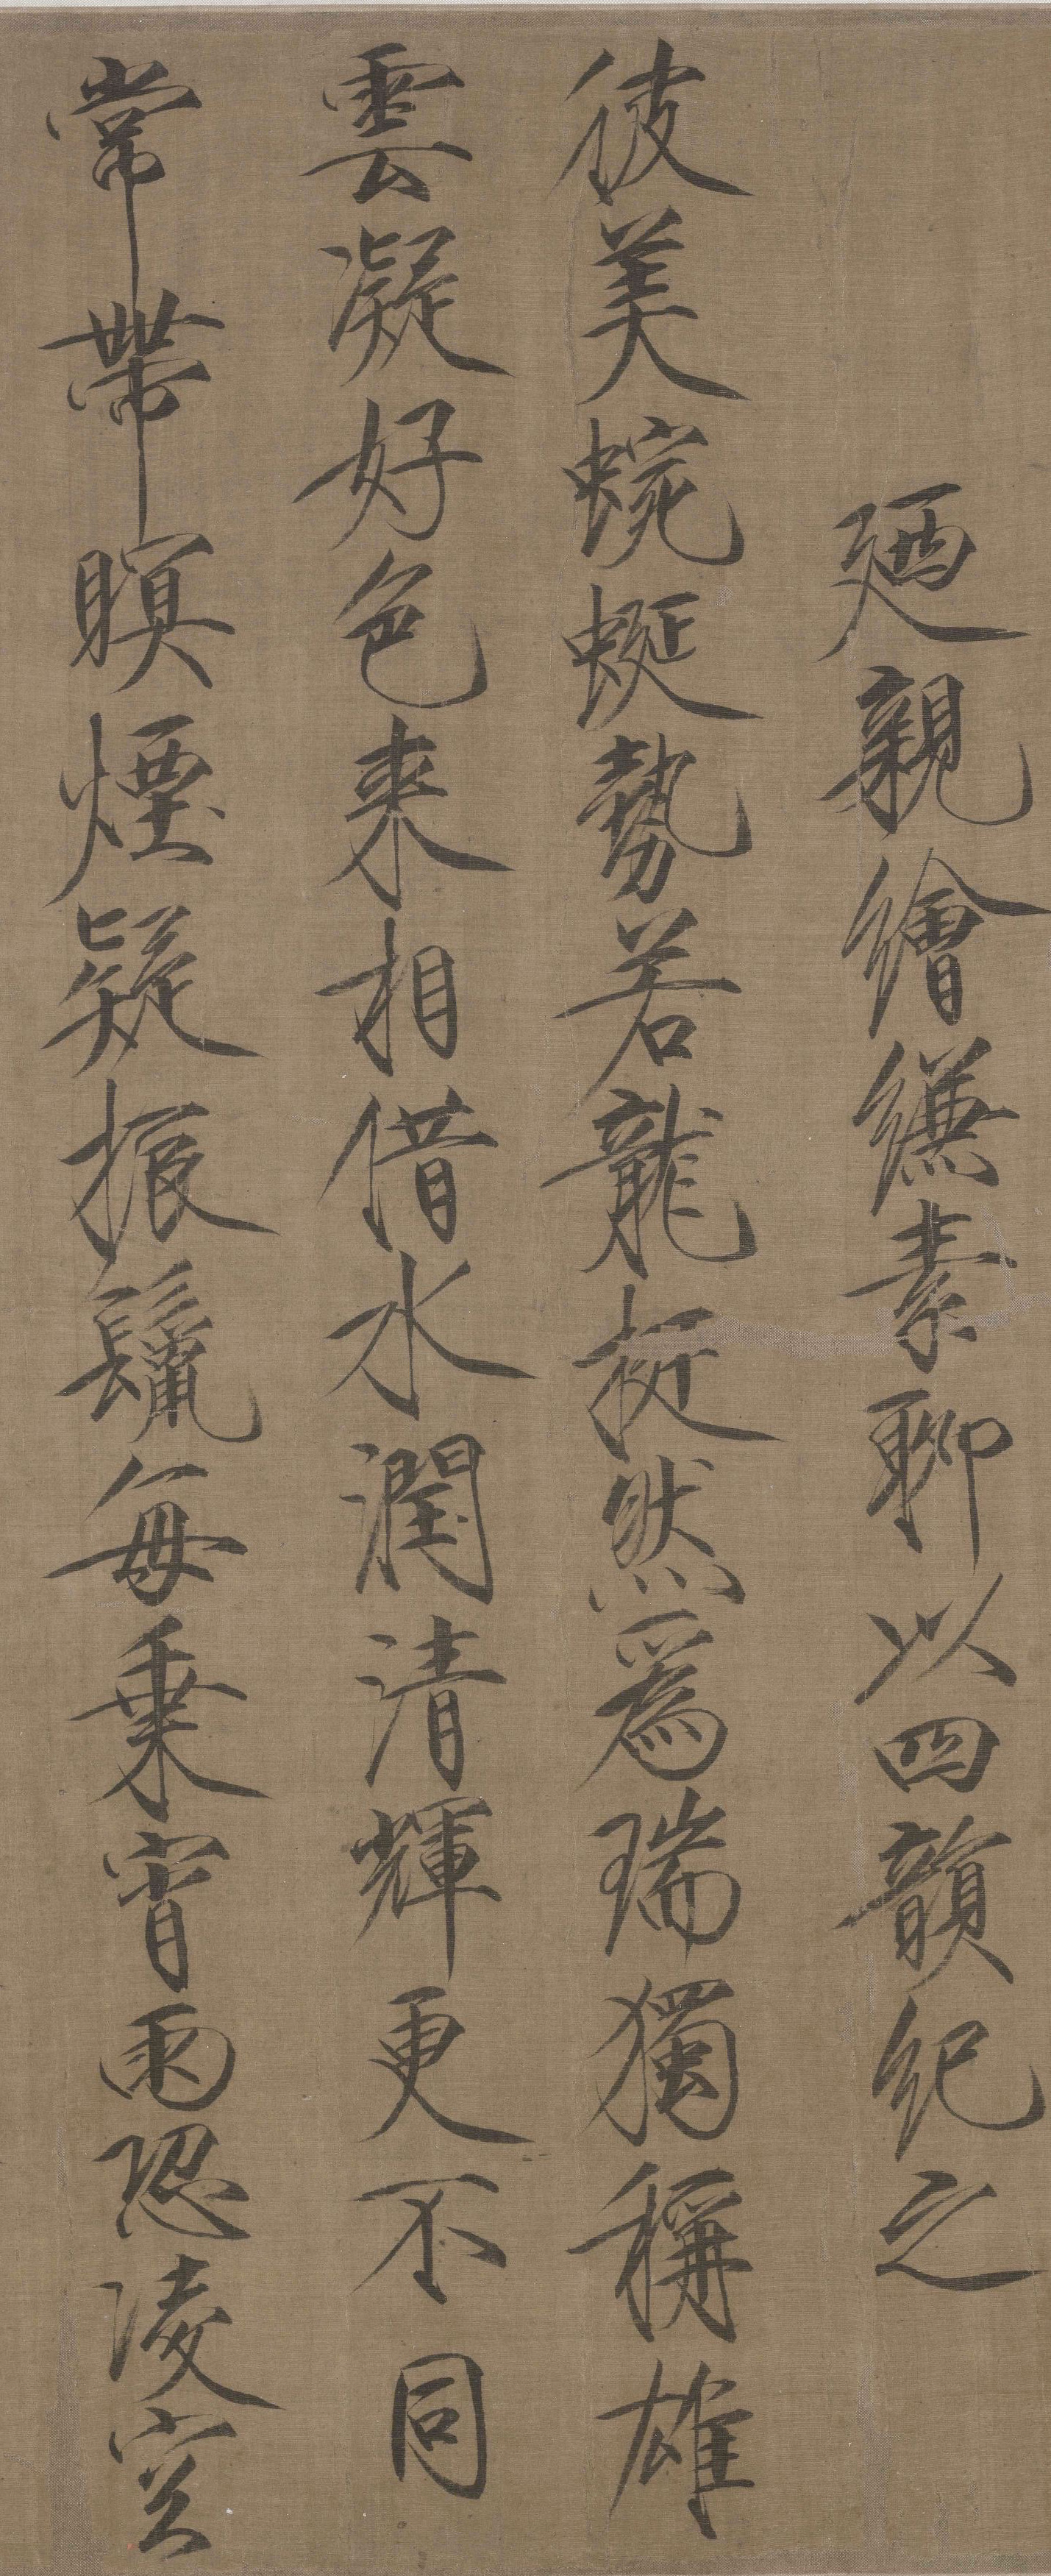 廼親繪縑素聊以四韻紀之
彼美蜿蜒勢若龍挺然爲瑞獨稱雄
雲凝好色來相借水潤清輝更不同
常帶暝煙疑振鬣每乗宵雨恐凌空